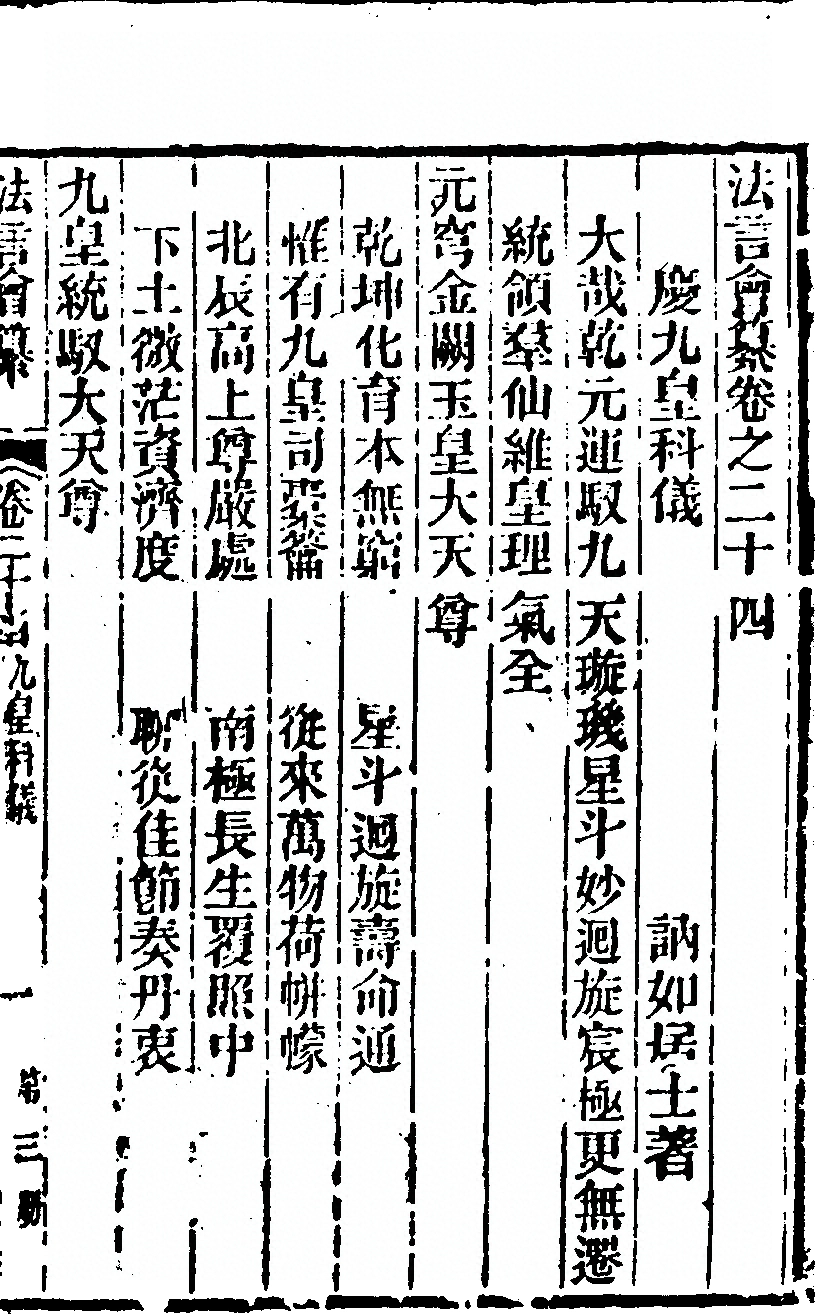 法言會纂卷之二十四
慶九皇科儀　訥如居士著
大哉乾元運馭九天璇璣星斗妙迴旋宸極更無遷
統領羣仙維皇理氣全
元穹金闕玉皇大天尊
乾坤化育本無窮　星斗迴旋壽命通
惟有九皇司橐籥　從來萬物荷帡幪
北辰高上尊嚴處　南極長生覆照中
下土微茫資濟度　聊從佳節奏丹衷
九皇統馭大天尊
法言會纂　卷二十四　九皇科儀　一　第三